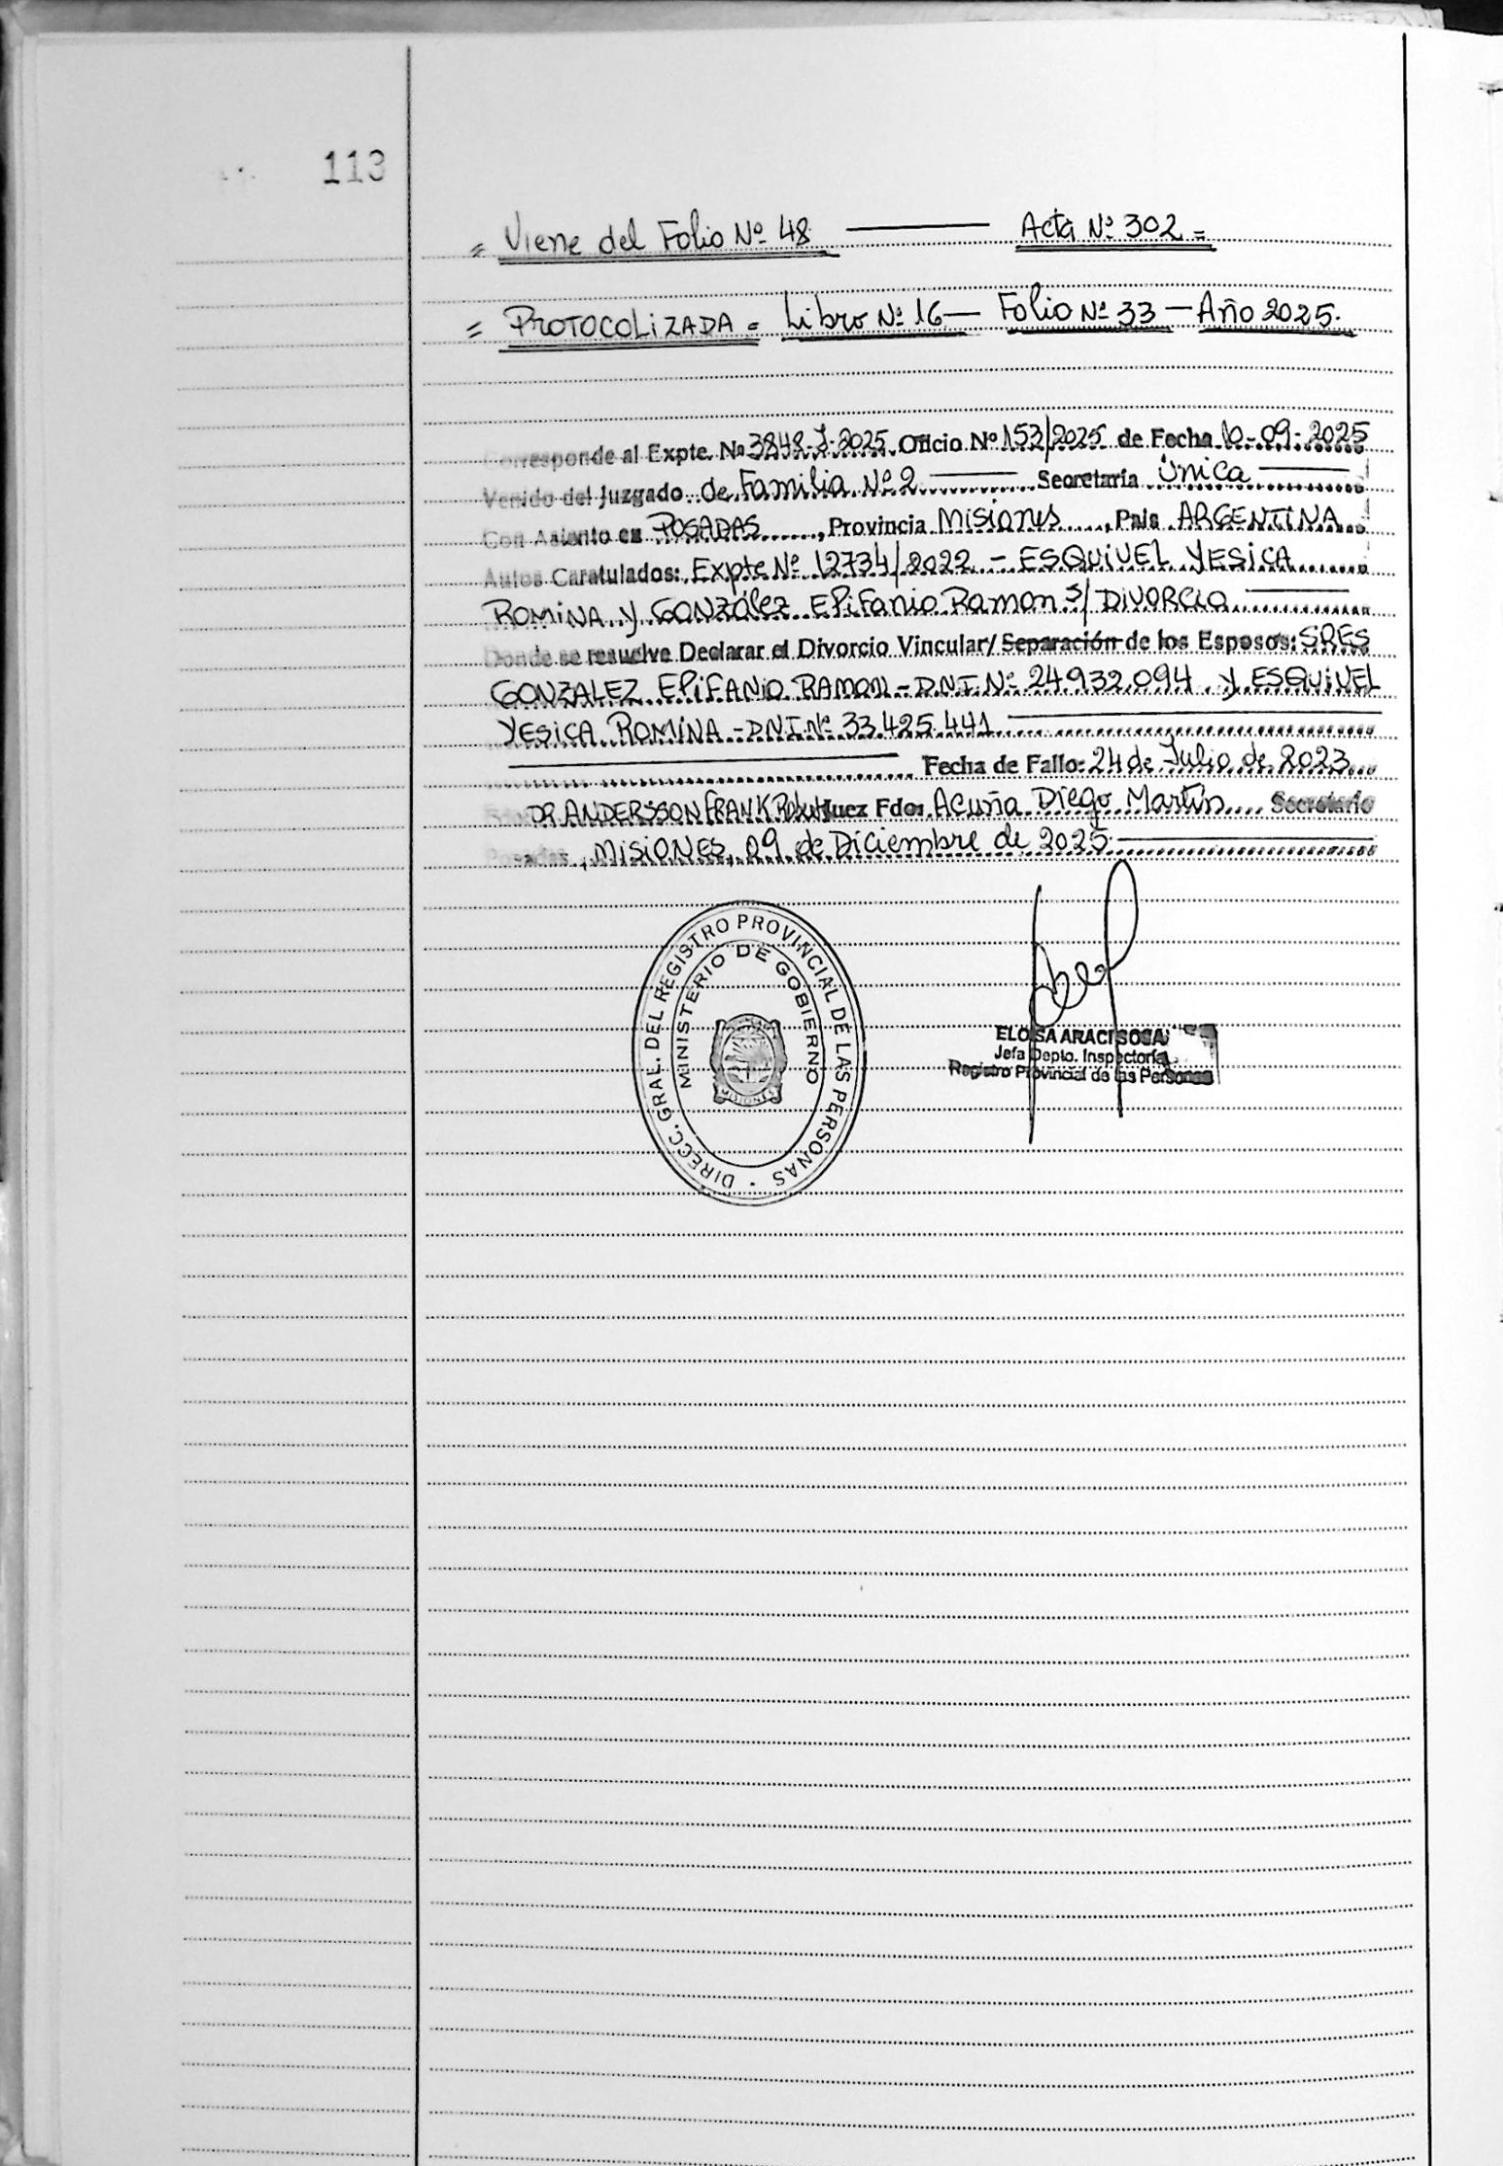 113
= Viene del Folio Nº 48 ——— Acta Nº 302 =
= PROTOCOLIZADA = Libro Nº 16 — Folio Nº 33 — Año 2025.
Corresponde al Expte. Nº 3848-J-2025 Oficio Nº 152/2025 de Fecha 10-09-2025
Venido del Juzgado de Familia Nº 2 ——— Secretaría Única ———
Con Asiento en POSADAS, Provincia MISIONES, País ARGENTINA
Autos Caratulados: Expte Nº 12734/2022 - ESQUIVEL YESICA
ROMINA y GONZÁLEZ EPIFANIO RAMON S/ DIVORCIO ———
Donde se resuelve Declarar el Divorcio Vincular/ Separación de los Esposos: SRES
GONZALEZ EPIFANIO RAMON - D.N.I. Nº 24.932.094 y ESQUIVEL
YESICA ROMINA - D.N.I. Nº 33.425.441 ———
——— Fecha de Fallo: 24 de Julio de 2023
DR ANDERSSON FRANK Juez Fdo: Acuña Diego Martín Secretario
Posadas, MISIONES, 09 de Diciembre de 2025 ———
DIRECC. GRAL. DEL REGISTRO PROVINCIAL DE LAS PERSONAS
MINISTERIO DE GOBIERNO
MISIONES
ELOISA ARACI SOSA
Jefa Depto. Inspectoría
Registro Provincial de las Personas